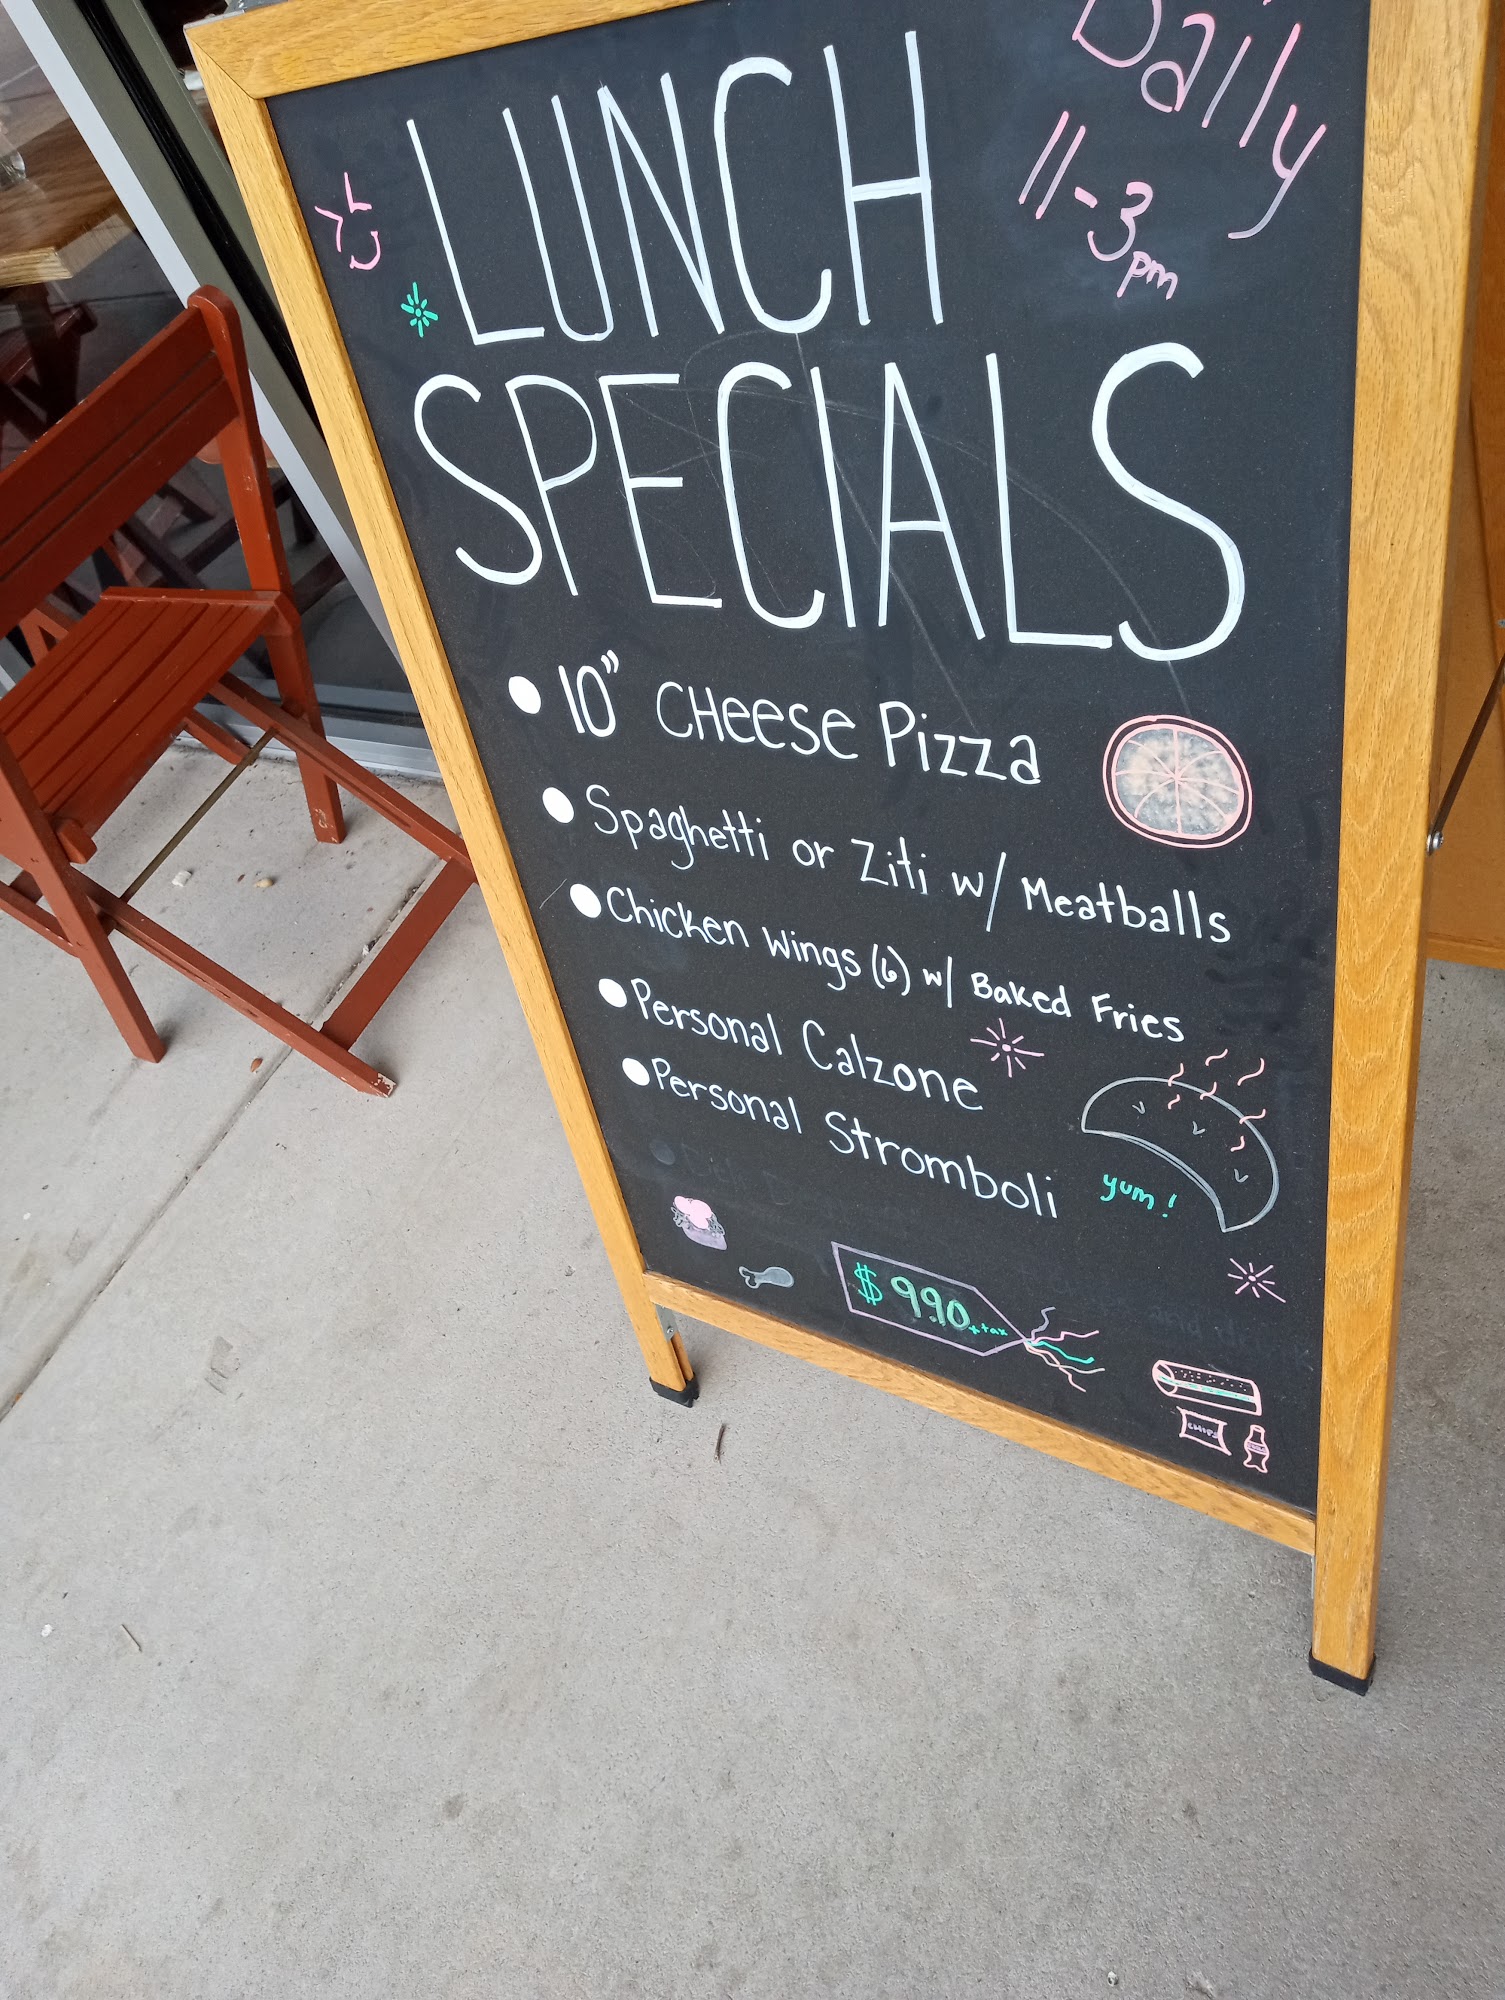 Daily
11-3pm
LUNCH
SPECIALS
• 10" CHeese Pizza
• Spaghetti or Ziti w/ Meatballs
• Chicken Wings (6) w/ Baked Fries
• Personal Calzone
• Personal Stromboli
yum!
$ 9.90 + tax
CHIPS